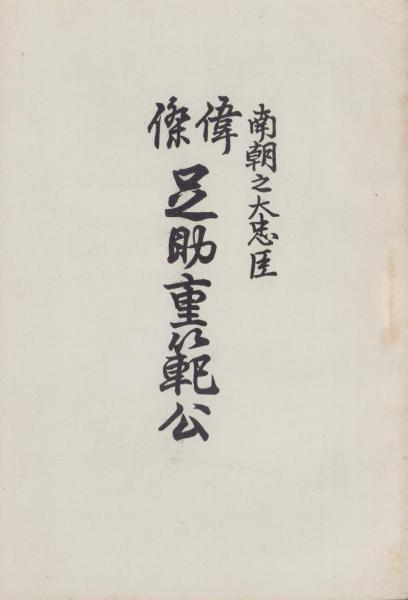 南朝之大忠臣
偉傑
足助重範公